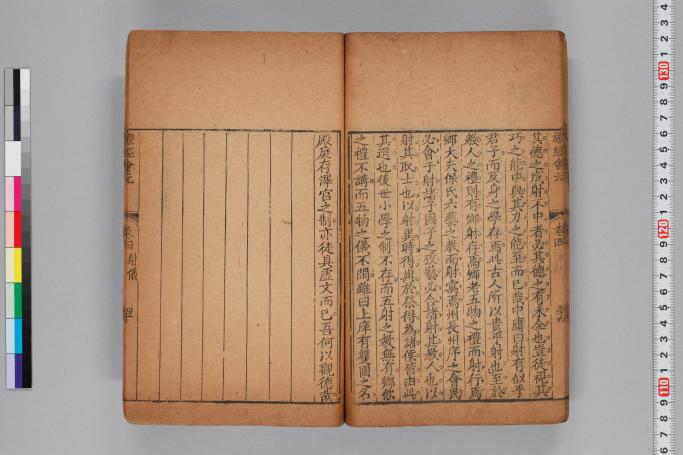 其德之成射不中者必其德之有未全也豈徒視其
巧之能中與其力之能至而已哉中庸曰射有似乎
君子而反身之學存焉此古人所以貴乎射也至於
教人之禮則有鄉射存焉鄉老五物之禮而射行焉
鄉大夫保氏六藝之教而射寓焉州長州序之會民
必會于射諸子國子之攷藝必合諸射其教人也以
射其取士也以射異時得與於祭得為諸侯皆由此
其選也後世小學之制不存而五射之教無有鄉飲
之禮不講而五物之儀不閑雖曰上庠有矍圃之名
殿庭存澤宮之制亦徒具虛文而已吾何以觀德哉
禮經會元
卷四 射儀